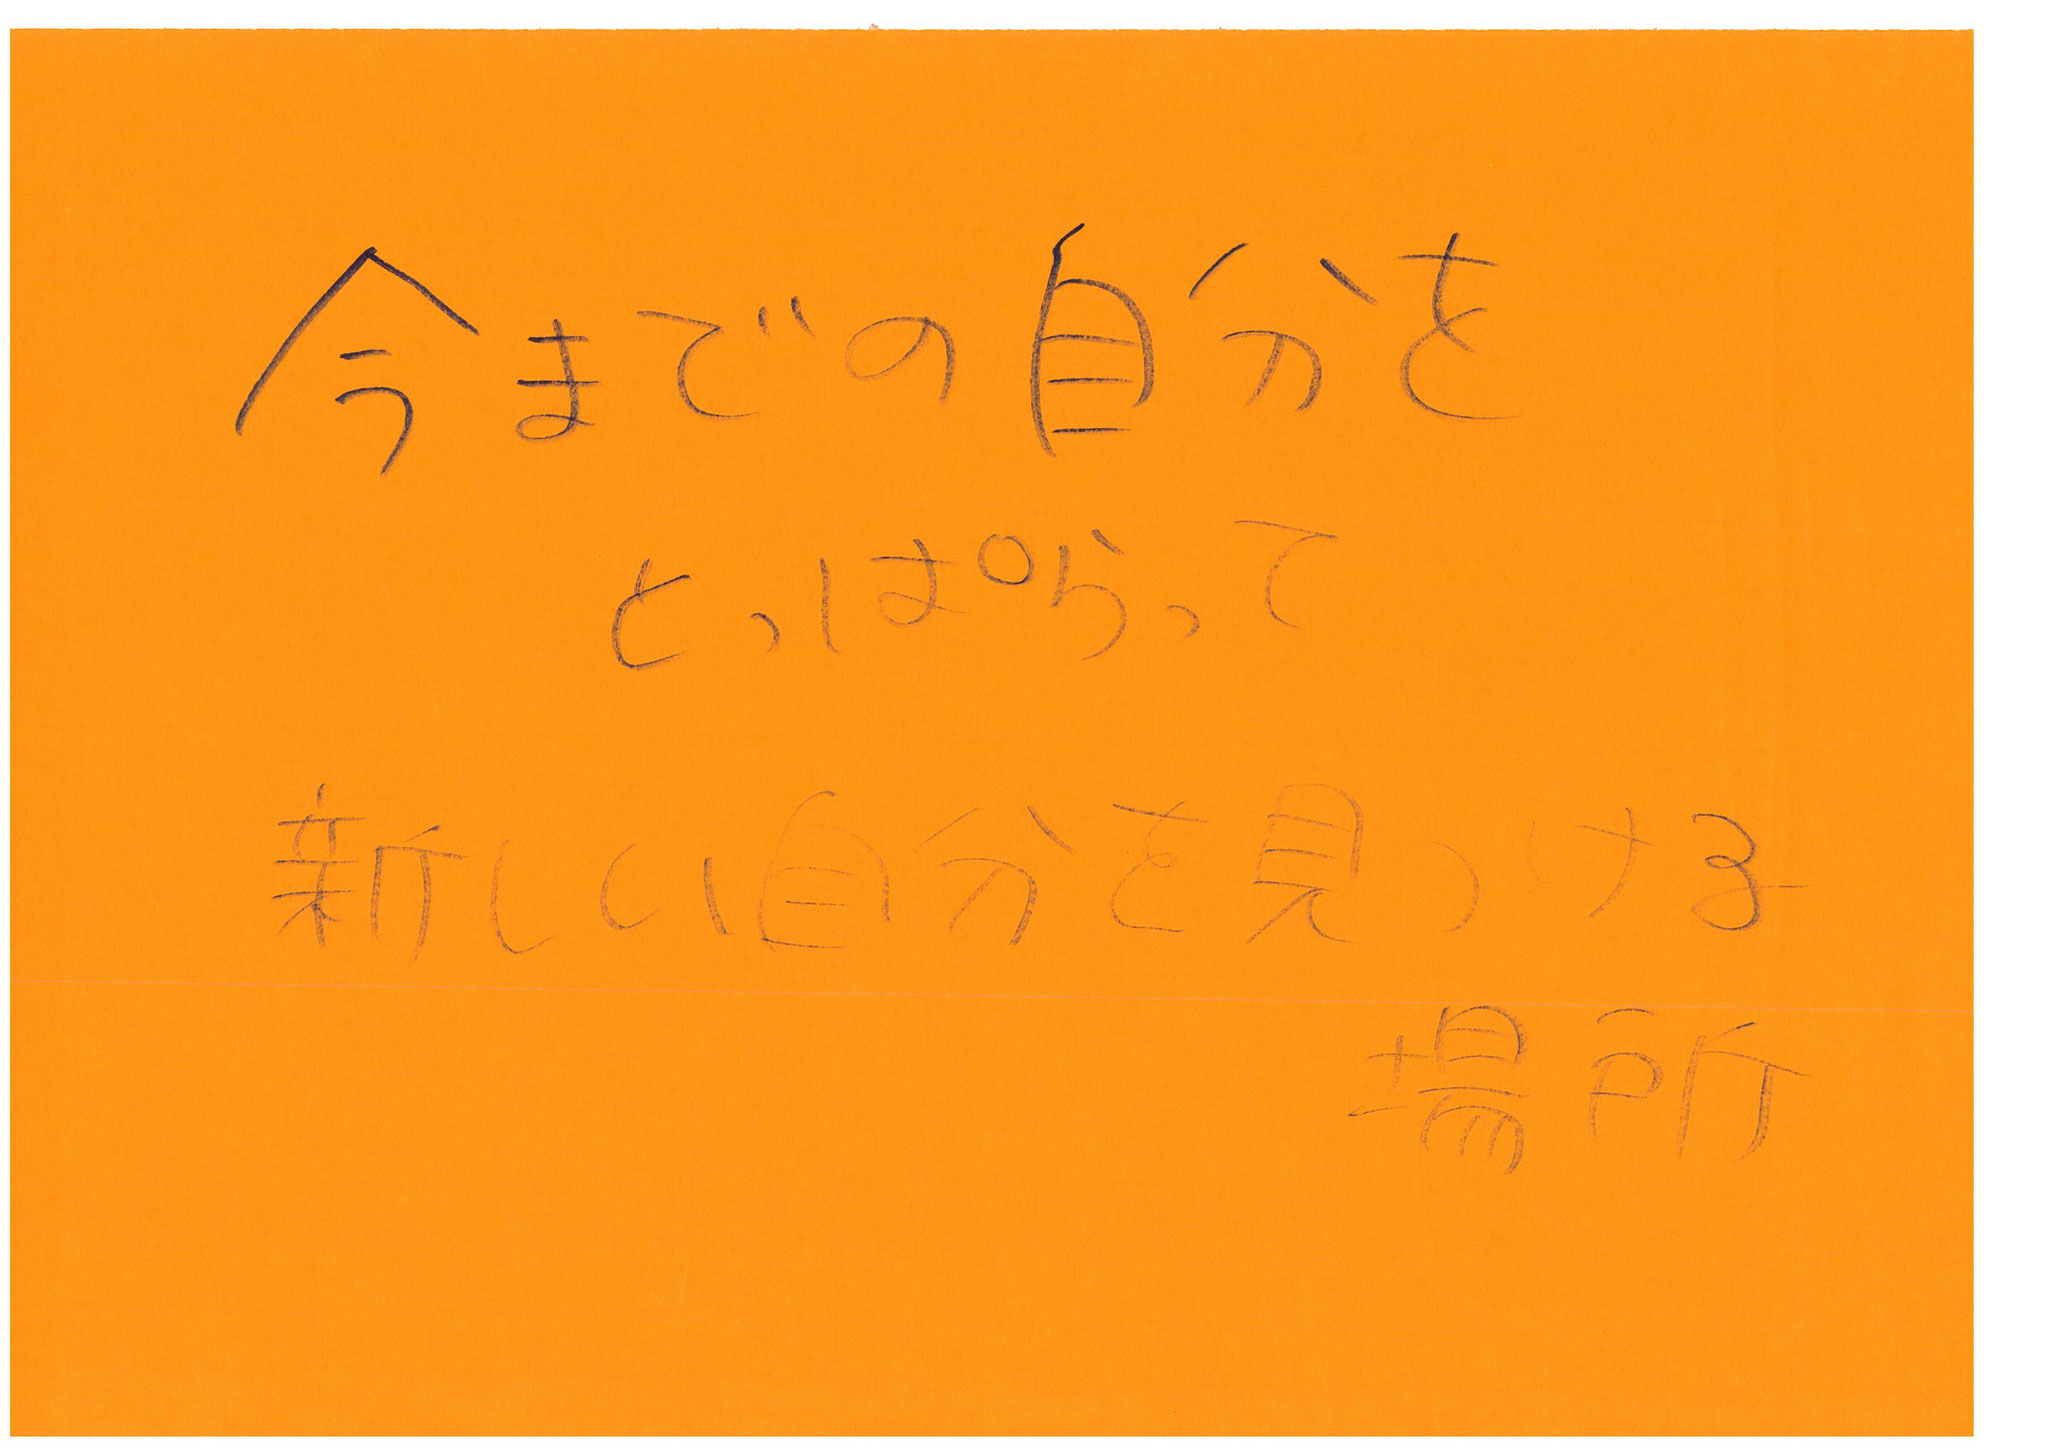 今までの自分を
とっぱらって
新しい自分を見つける
場所